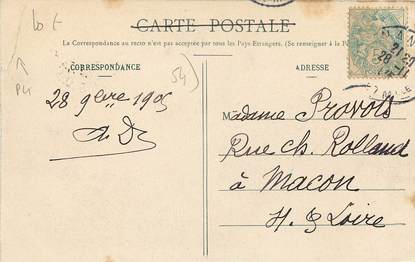 CARTE POSTALE
La Correspondance au recto n'est pas acceptée par tous les Pays Etrangers. (Se renseigner à la
CORRESPONDANCE
ADRESSE
54
28 9bre 1905
Madame Provots
Rue Ch. Rolland
à Macon
H. & Loire